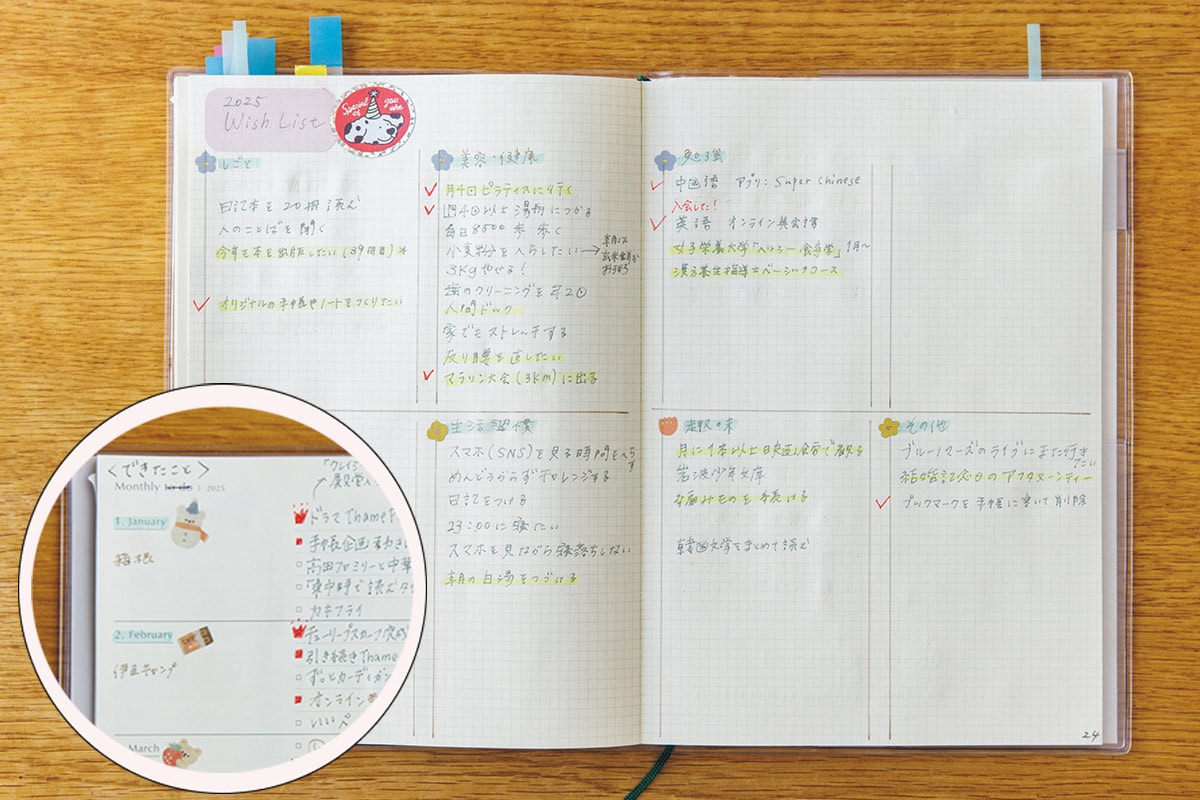 2025
Wish List
Special as you are
しごと
日記本を20冊読む
人のことばを聞く
今年も本を出版したい(39冊目)
オリジナルの手帳やノートをつくりたい
美容・健康
月4回ピラティスに行く
週4回以上湯船につかる
毎日8500歩歩く
小麦粉をへらしたい→
朝は
玄米
3kgやせる!
歯のクリーニングを年2回
人間ドック
家でもストレッチする
反り腰を直したい
マラソン大会(3km)に出る
生活習慣
スマホ(SNS)を見る時間をへらす
めんどうがらずチャレンジする
日記をつける
23:00に寝たい
スマホを見ながら寝落ちしない
朝の白湯をつづける
勉強
中国語 アプリ:Super Chinese
入会した!
英語 オンライン英会話
女子栄養大学「ヘルシー食事学」1月〜
漢方養生指導士ベーシックコース
趣味の末
月に1本以上映画館で観る
岩波少年文庫
編みものを続ける
韓国文学をまとめて読む
その他
ブルーノマーズのライブにまた行きたい
結婚記念日のアフタヌーンティー
ブックマークを手帳に書いて削除
24
<できたこと>
Monthly to do 2025
「クレイジー
1. January
箱根
ドラマThame
手帳企画
高田
「集中
カキフライ
2. February
伊豆キャンプ
チューリップスカーフ完成
引き続きThame
ずっとカーディガン
オンライン
いいペ
March